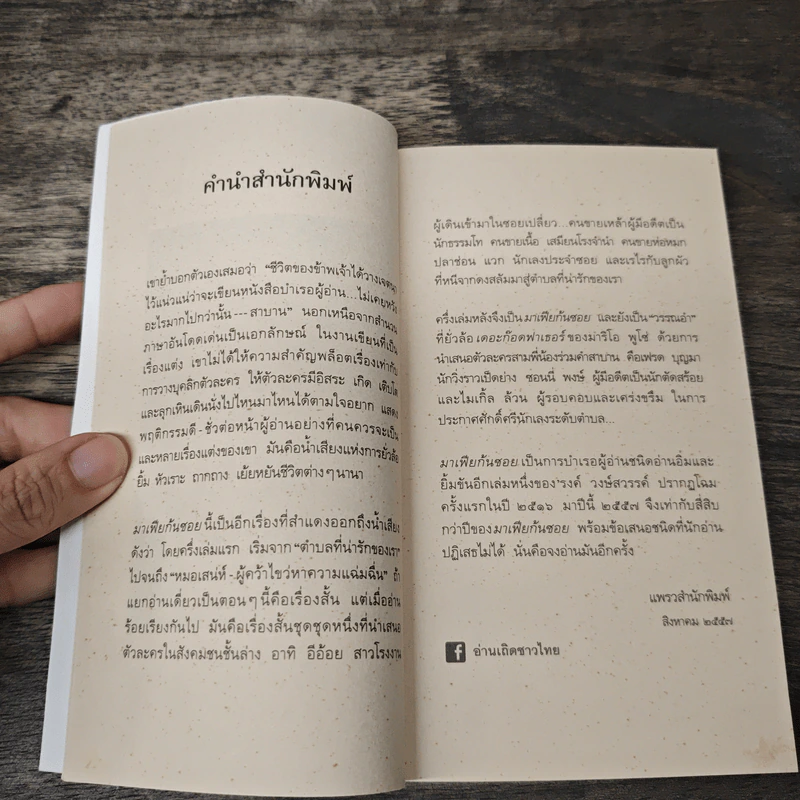 คำนำสำนักพิมพ์
เขาย้ำบอกตัวเองเสมอว่า “ชีวิตของข้าพเจ้าได้วางเจตนา
ไว้แน่แน่วว่าจะเขียนหนังสือบำเรอผู้อ่าน...ไม่เคยหวัง
อะไรมากไปกว่านั้น --- สาบาน” นอกเหนือจากสำนวน
ภาษาอันโดดเด่นเป็นเอกลักษณ์ ในงานเขียนที่เป็น
เรื่องแต่ง เขาไม่ได้ให้ความสำคัญพล็อตเรื่องเท่ากับ
การวางบุคลิกตัวละคร ให้ตัวละครมีอิสระ เกิด เติบโต
และลุกเหินเดินนั่งไปไหนมาไหนได้ตามใจอยาก แสดง
พฤติกรรมดี - ชั่วต่อหน้าผู้อ่านอย่างที่คนควรจะเป็น
และหลายเรื่องแต่งของเขา มันคือน้ำเสียงแห่งการยั่วล้อ
ยิ้ม หัวเราะ ถากถาง เย้ยหยันชีวิตต่างๆ นานา
มาเฟียก้นซอย นี้เป็นอีกเรื่องที่สำแดงออกถึงน้ำเสียง
ดังว่า โดยครึ่งเล่มแรก เริ่มจาก “ตำบลที่น่ารักของเรา”
ไปจนถึง “หมอเสน่ห์ - ผู้คว้าไขว่หาความแฉ่มฉื่น” ถ้า
แยกอ่านเดี่ยวเป็นตอนๆ นี้คือเรื่องสั้น แต่เมื่ออ่าน
ร้อยเรียงกันไป มันคือเรื่องสั้นชุดชุดหนึ่งที่นำเสนอ
ตัวละครในสังคมชนชั้นล่าง อาทิ อีอ้อย สาวโรงงาน
ผู้เดินเข้ามาในซอยเปลี่ยว...คนขายเหล้าผู้มีอดีตเป็น
นักธรรมโท คนขายเนื้อ เสมียนโรงจำนำ คนขายห่อหมก
ปลาช่อน แวก นักเลงประจำซอย และเรไรกับลูกผัว
ที่หนีจากดงสลัมมาสู่ตำบลที่น่ารักของเรา
ครึ่งเล่มหลังจึงเป็น มาเฟียก้นซอย และยังเป็น “วรรณอำ”
ที่ยั่วล้อ เดอะก๊อดฟาเธอร์ ของมาริโอ พูโซ่ ด้วยการ
นำเสนอตัวละครสามพี่น้องร่วมคำสาบาน คือเฟรด บุญมา
นักวิ่งราวเป็ดย่าง ซอนนี่ พงษ์ ผู้มีอดีตเป็นนักดัดสร้อย
และไมเกิ้ล ล้วน ผู้รอบคอบและเคร่งขรึม ในการ
ประกาศศักดิ์ศรีนักเลงระดับตำบล...
มาเฟียก้นซอย เป็นการบำเรอผู้อ่านชนิดอ่านอิ่มและ
ยิ้มขันอีกเล่มหนึ่งของ ’รงค์ วงษ์สวรรค์ ปรากฏโฉม
ครั้งแรกในปี ๒๕๑๖ มาปีนี้ ๒๕๕๗ จึงเท่ากับสี่สิบ
กว่าปีของ มาเฟียก้นซอย พร้อมข้อเสนอชนิดที่นักอ่าน
ปฏิเสธไม่ได้ นั่นคือจงอ่านมันอีกครั้ง
แพรวสำนักพิมพ์
สิงหาคม ๒๕๕๗
f อ่านเถิดชาวไทย